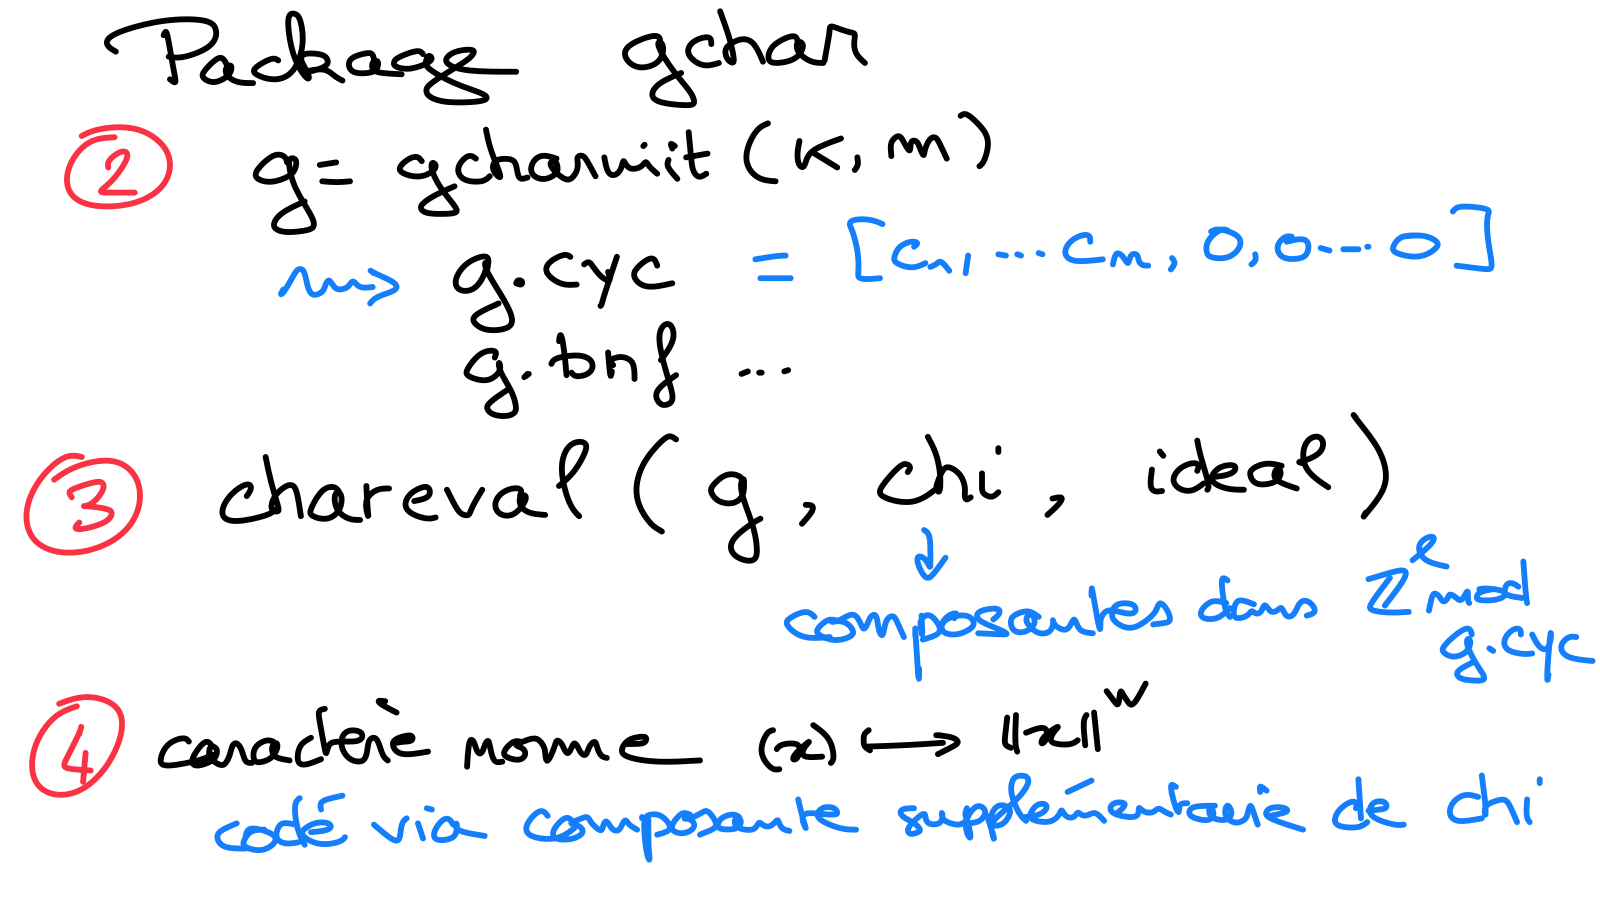 Package gchar
② g = gcharinit (K, m)
⇝ g.cyc = [c₁, ... cₘ, 0, 0 ... 0]
g.bnf ...
③ chareval ( g , chi , ideal )
↓
composantes dans ℤˡ mod
g.cyc
④ caractère norme (x) ⟼ ||x||ʷ
codé via composante supplémentaire de chi